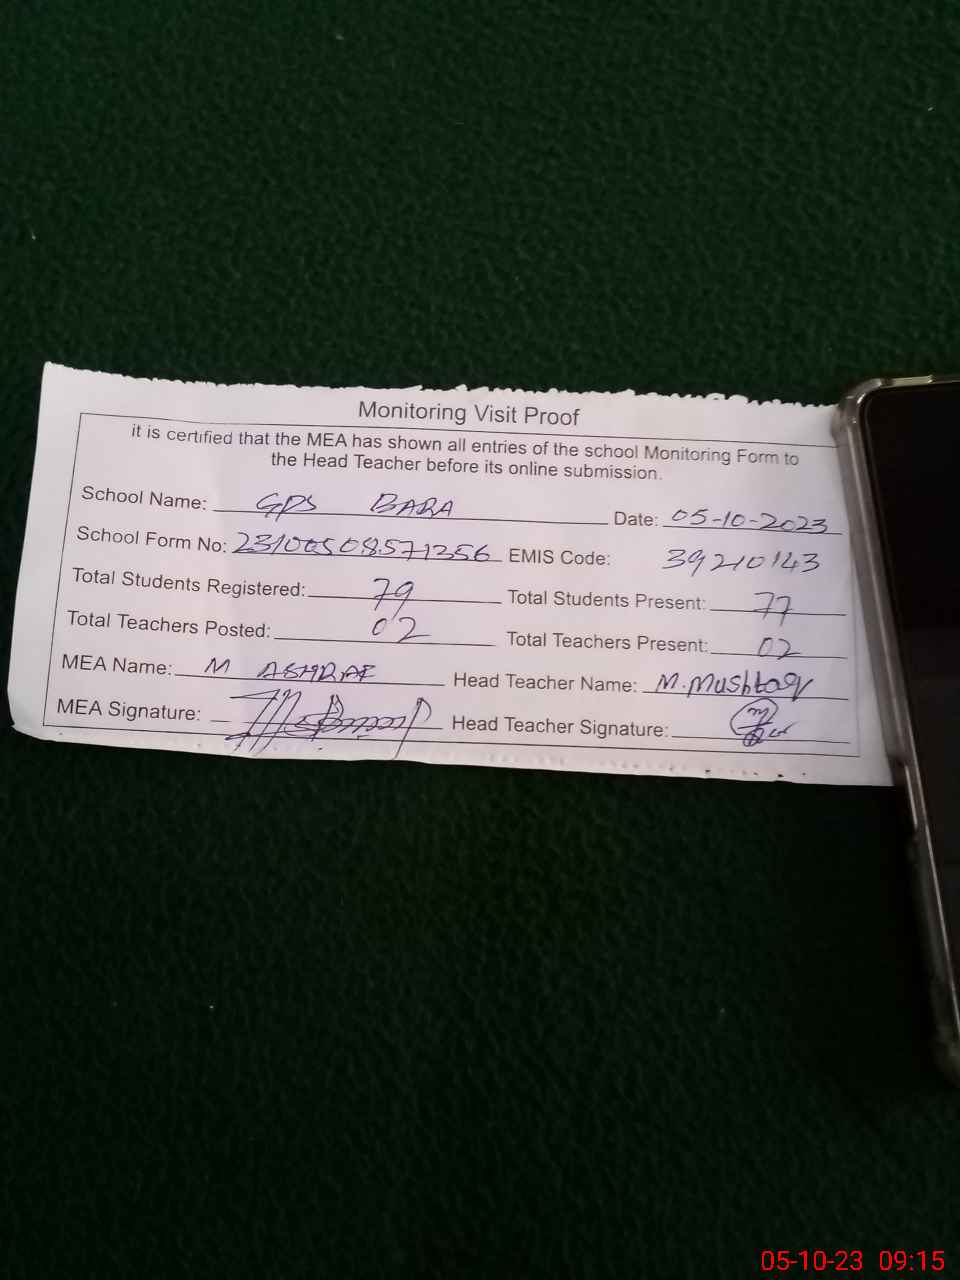 Monitoring Visit Proof
it is certified that the MEA has shown all entries of the school Monitoring Form to
the Head Teacher before its online submission.
School Name: GPS BARA Date: 05-10-2023
School Form No: 23100508571356 EMIS Code: 39210143
Total Students Registered: 79 Total Students Present: 77
Total Teachers Posted: 02 Total Teachers Present: 02
MEA Name: M ASHRAF Head Teacher Name: M. Mushtaq
MEA Signature: Head Teacher Signature:
05-10-23 09:15